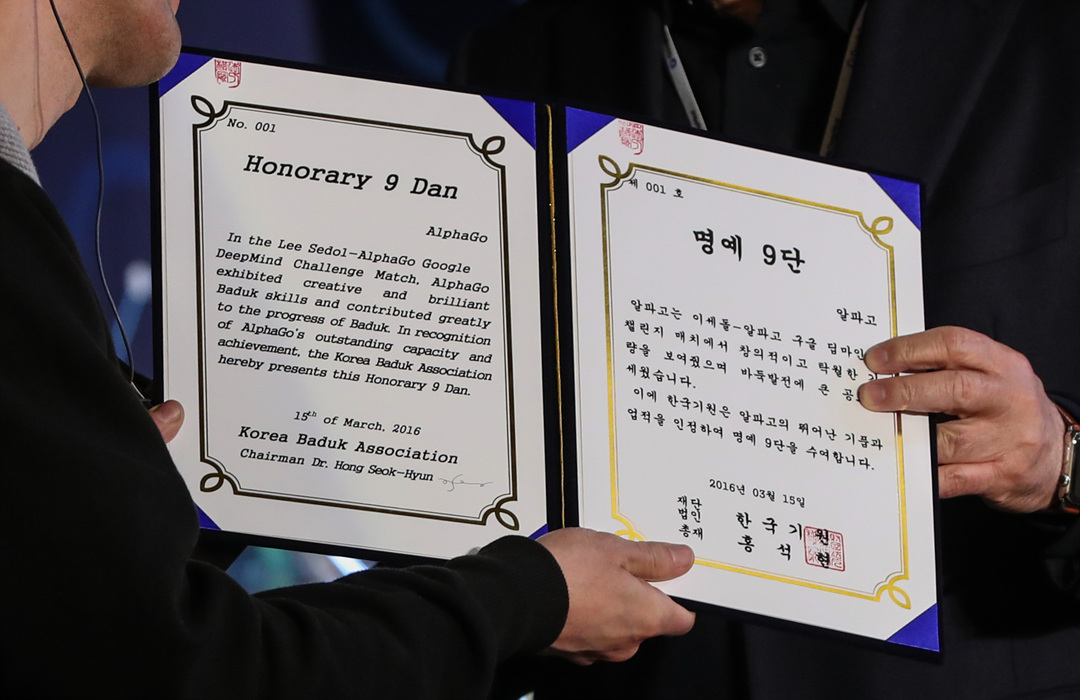 No. 001
Honorary 9 Dan
AlphaGo
In the Lee Sedol-AlphaGo Google
DeepMind Challenge Match, AlphaGo
exhibited creative and brilliant
Baduk skills and contributed greatly
to the progress of Baduk. In recognition
of AlphaGo's outstanding capacity and
achievement, the Korea Baduk Association
hereby presents this Honorary 9 Dan.
15th of March, 2016
Korea Baduk Association
Chairman Dr. Hong Seok-Hyun
제 001 호
명예 9단
알파고
알파고는 이세돌-알파고 구글 딥마인
챌린지 매치에서 창의적이고 탁월한
량을 보여줬으며 바둑발전에 큰 공
세웠습니다.
이에 한국기원은 알파고의 뛰어난 기품과
업적을 인정하여 명예 9단을 수여합니다.
2016년 03월 15일
재단
법인 한국기원
총재 홍석현